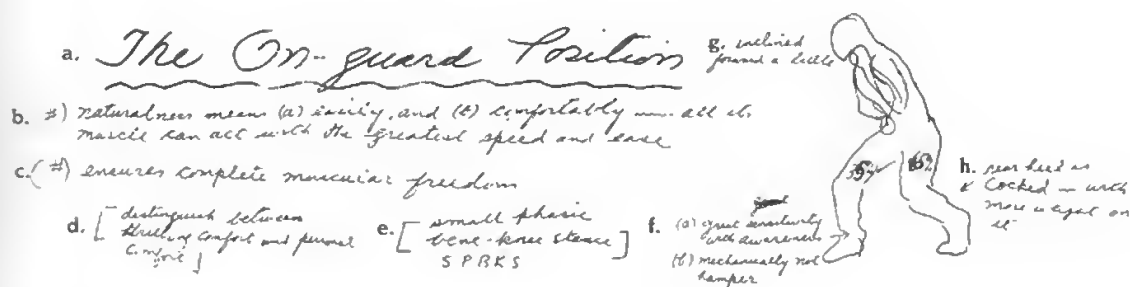 a. The On-guard Position
g. inclined
forward a little
b. #) naturalness means (a) easily, and (b) comfortably — all
muscle can act with the greatest speed and ease
c. (#) ensures complete muscular freedom
d. [distinguish between
comfort and personal
comfort]
e. [small phasic
bent-knee stance]
S P B K S
f. (a) great sensitivity
with awareness
(b) mechanically not
hamper
h. rear heel is
cocked — with
more weight on
it